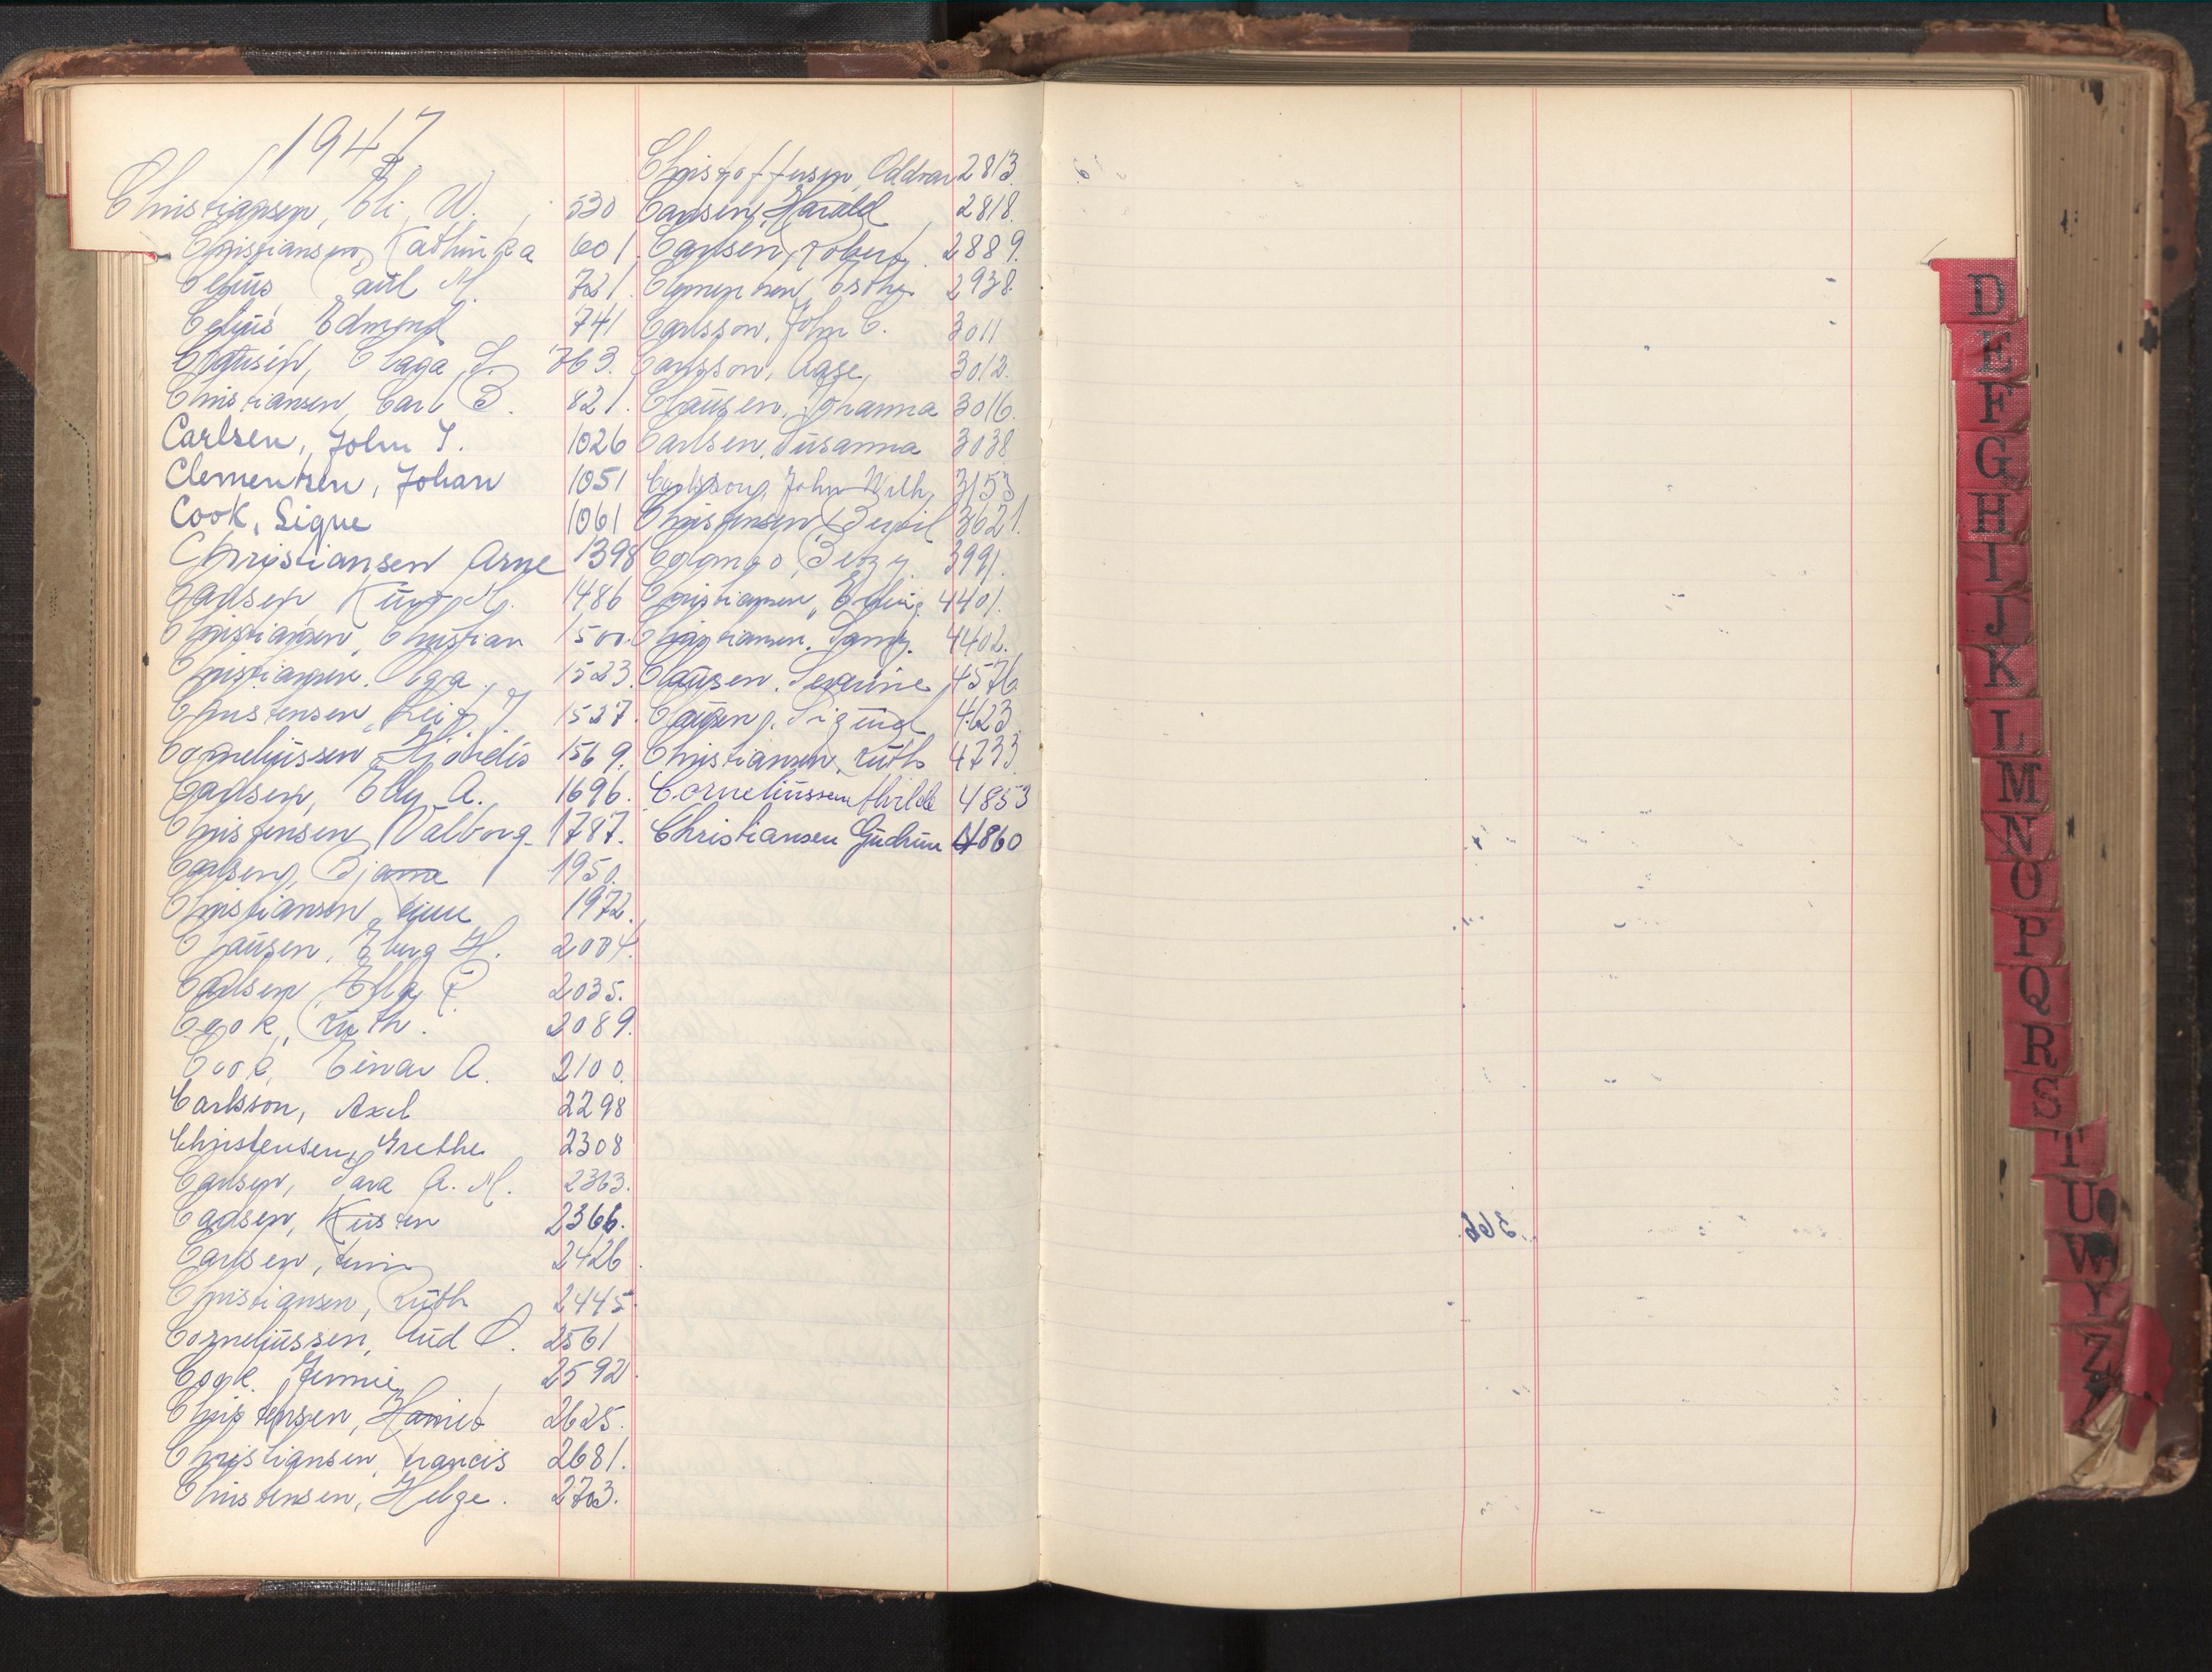 1947
Christiansen, Eli W. 530
Christiansen, Kathinka 601
Celius Paul M. 721.
Celius Edmond 741
Claga S. 763.
Christiansen, Carl B. 821.
Carlsen, John I. 1026
Clementsen, Johan 1051
Cook, Signe 1061
Christiansen Arne 1398
Carlsen, Kurt M. 1486
Christiansen, Christian 1500.
Christiansen. Olga. 1523.
Christensen, Leif J. 1527.
Corneliussen, Hjördis 1569.
Carlsen, Elly A. 1696.
Christensen, Valborg. 1787.
Carlsen, Bjarne 1950.
Christiansen, 1972.
Clausen, H. 2004.
Carlsen Ella P. 2035.
Cook, Ruth. 2089.
Cook, Einar A. 2100.
Carlsson, Axel 2298
Christensen, Grethe 2308
Carlsen, Sara A. M. 2363.
Carlsen, Kirsten 2366.
Carlsen, 2426
Christiansen, Ruth 2445.
Corneliussen, Aud O. 2561
Cook. Jennie, 2592
Christensen, Harriet 2625.
Christiansen, Francis 2681.
Christensen, Helge. 2703.
Christoffersen, Oddvar 2813.
Carlsen, Harald 2818.
Carlsen, Robert. 2889.
Clementsen, Esther 2938.
Carlsson, John C. 3011
Carlsson, Aage, 3012.
Clausen, Johanna 3016.
Carlsen, Susanna 3038
Carlsson, John Wilh, 3153
Christensen, Bertil 3621.
Colongo, Betzy. 3991.
Christiansen, Erling. 4401.
Christiansen. Samy. 4402.
Clausen. Severine, 4576
Clausen, Sigurd 4623
Christiansen, Ruth 4733
Corneliussen Hilda 4853
Christiansen Gudrun 4860
D
E
F
G
H
I
J
K
L
M
N
O
P
Q
R
S
T
U
W
Y
Z